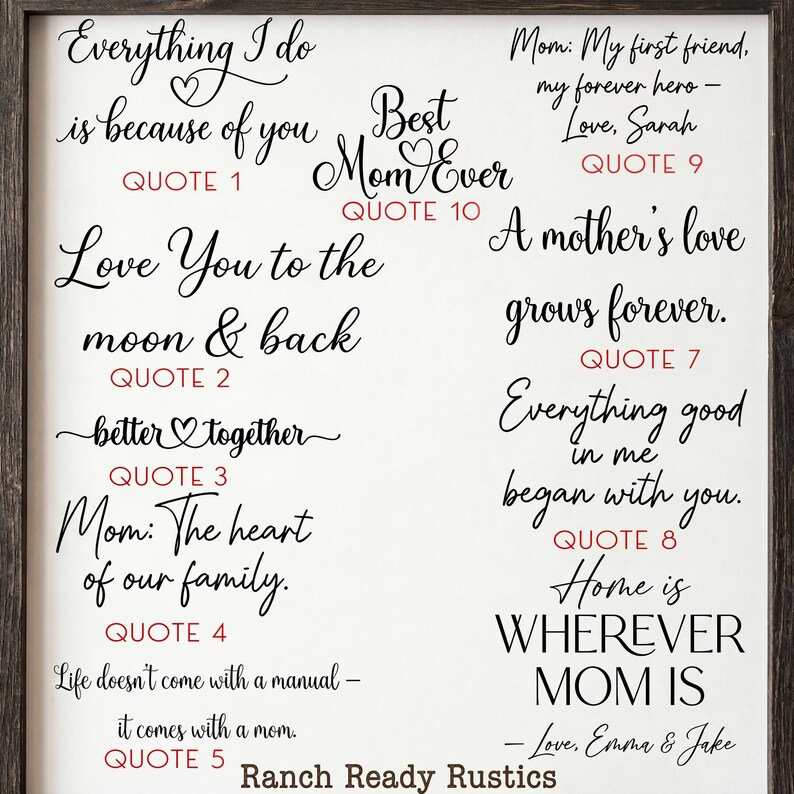 Everything I do
is because of you
QUOTE 1
Love You to the
moon & back
QUOTE 2
better together
QUOTE 3
Mom: The heart
of our family.
QUOTE 4
Life doesn't come with a manual –
it comes with a mom.
QUOTE 5
Best
Mom Ever
QUOTE 10
Mom: My first friend,
my forever hero –
Love, Sarah
QUOTE 9
A mother's love
grows forever.
QUOTE 7
Everything good
in me
began with you.
QUOTE 8
Home is
WHEREVER
MOM IS
– Love, Emma & Jake
Ranch Ready Rustics